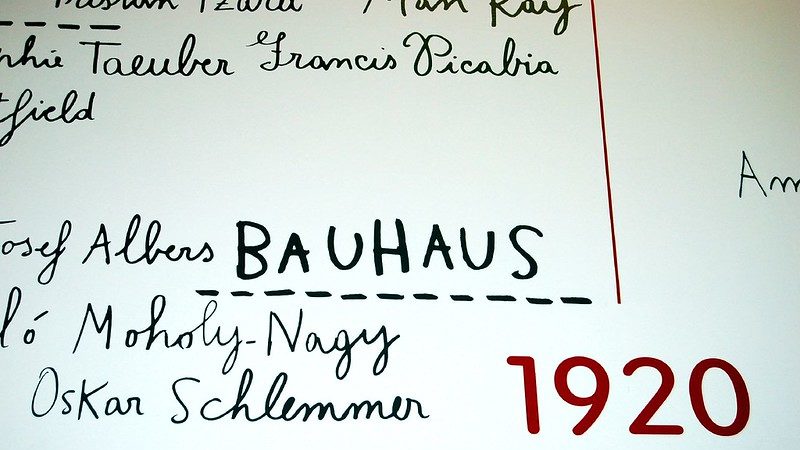 Tristan Tzara Man Ray
phie Taeuber Francis Picabia
tfield
Josef Albers BAUHAUS
ló Moholy-Nagy
Oskar Schlemmer
1920
Am